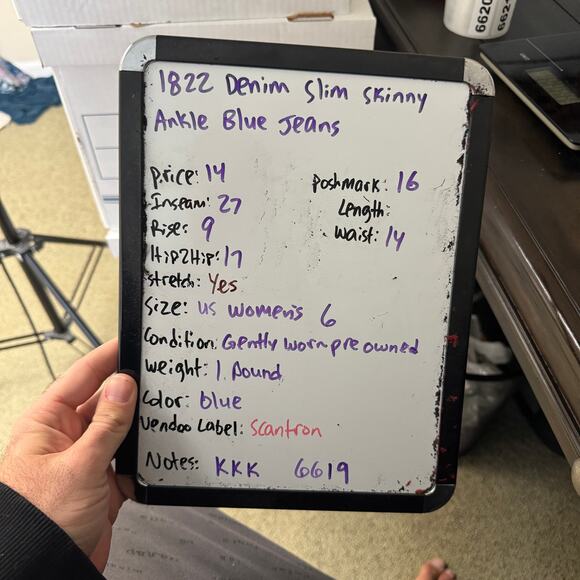 1822 Denim Slim Skinny
Ankle Blue Jeans
Price: 14
Poshmark: 16
Inseam: 27
Length:
Rise: 9
Waist: 14
Hip2Hip: 17
Stretch: Yes
Size: US Women's 6
Condition: Gently worn pre owned
Weight: 1 Pound
Color: blue
Vendoo Label: Scantron
Notes: KKK 6619
6620